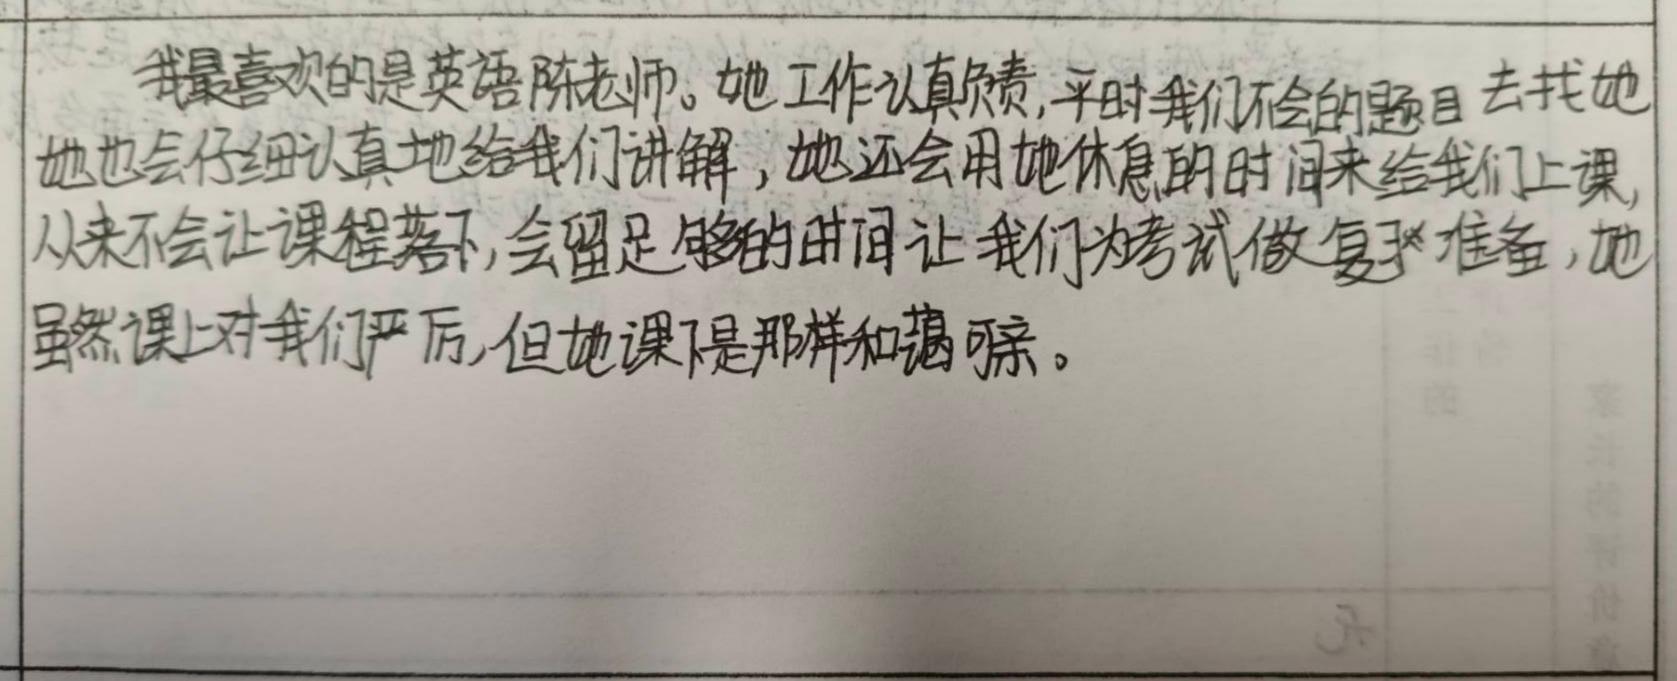 我最喜欢的是英语陈老师。她工作认真负责,平时我们不会的题目去找她
她也会仔细认真地给我们讲解,她还会用她休息的时间来给我们上课,
从来不会让课程落下,会留足够的时间让我们为考试做复习准备,她
虽然课上对我们严厉,但她课下是那样和蔼可亲。